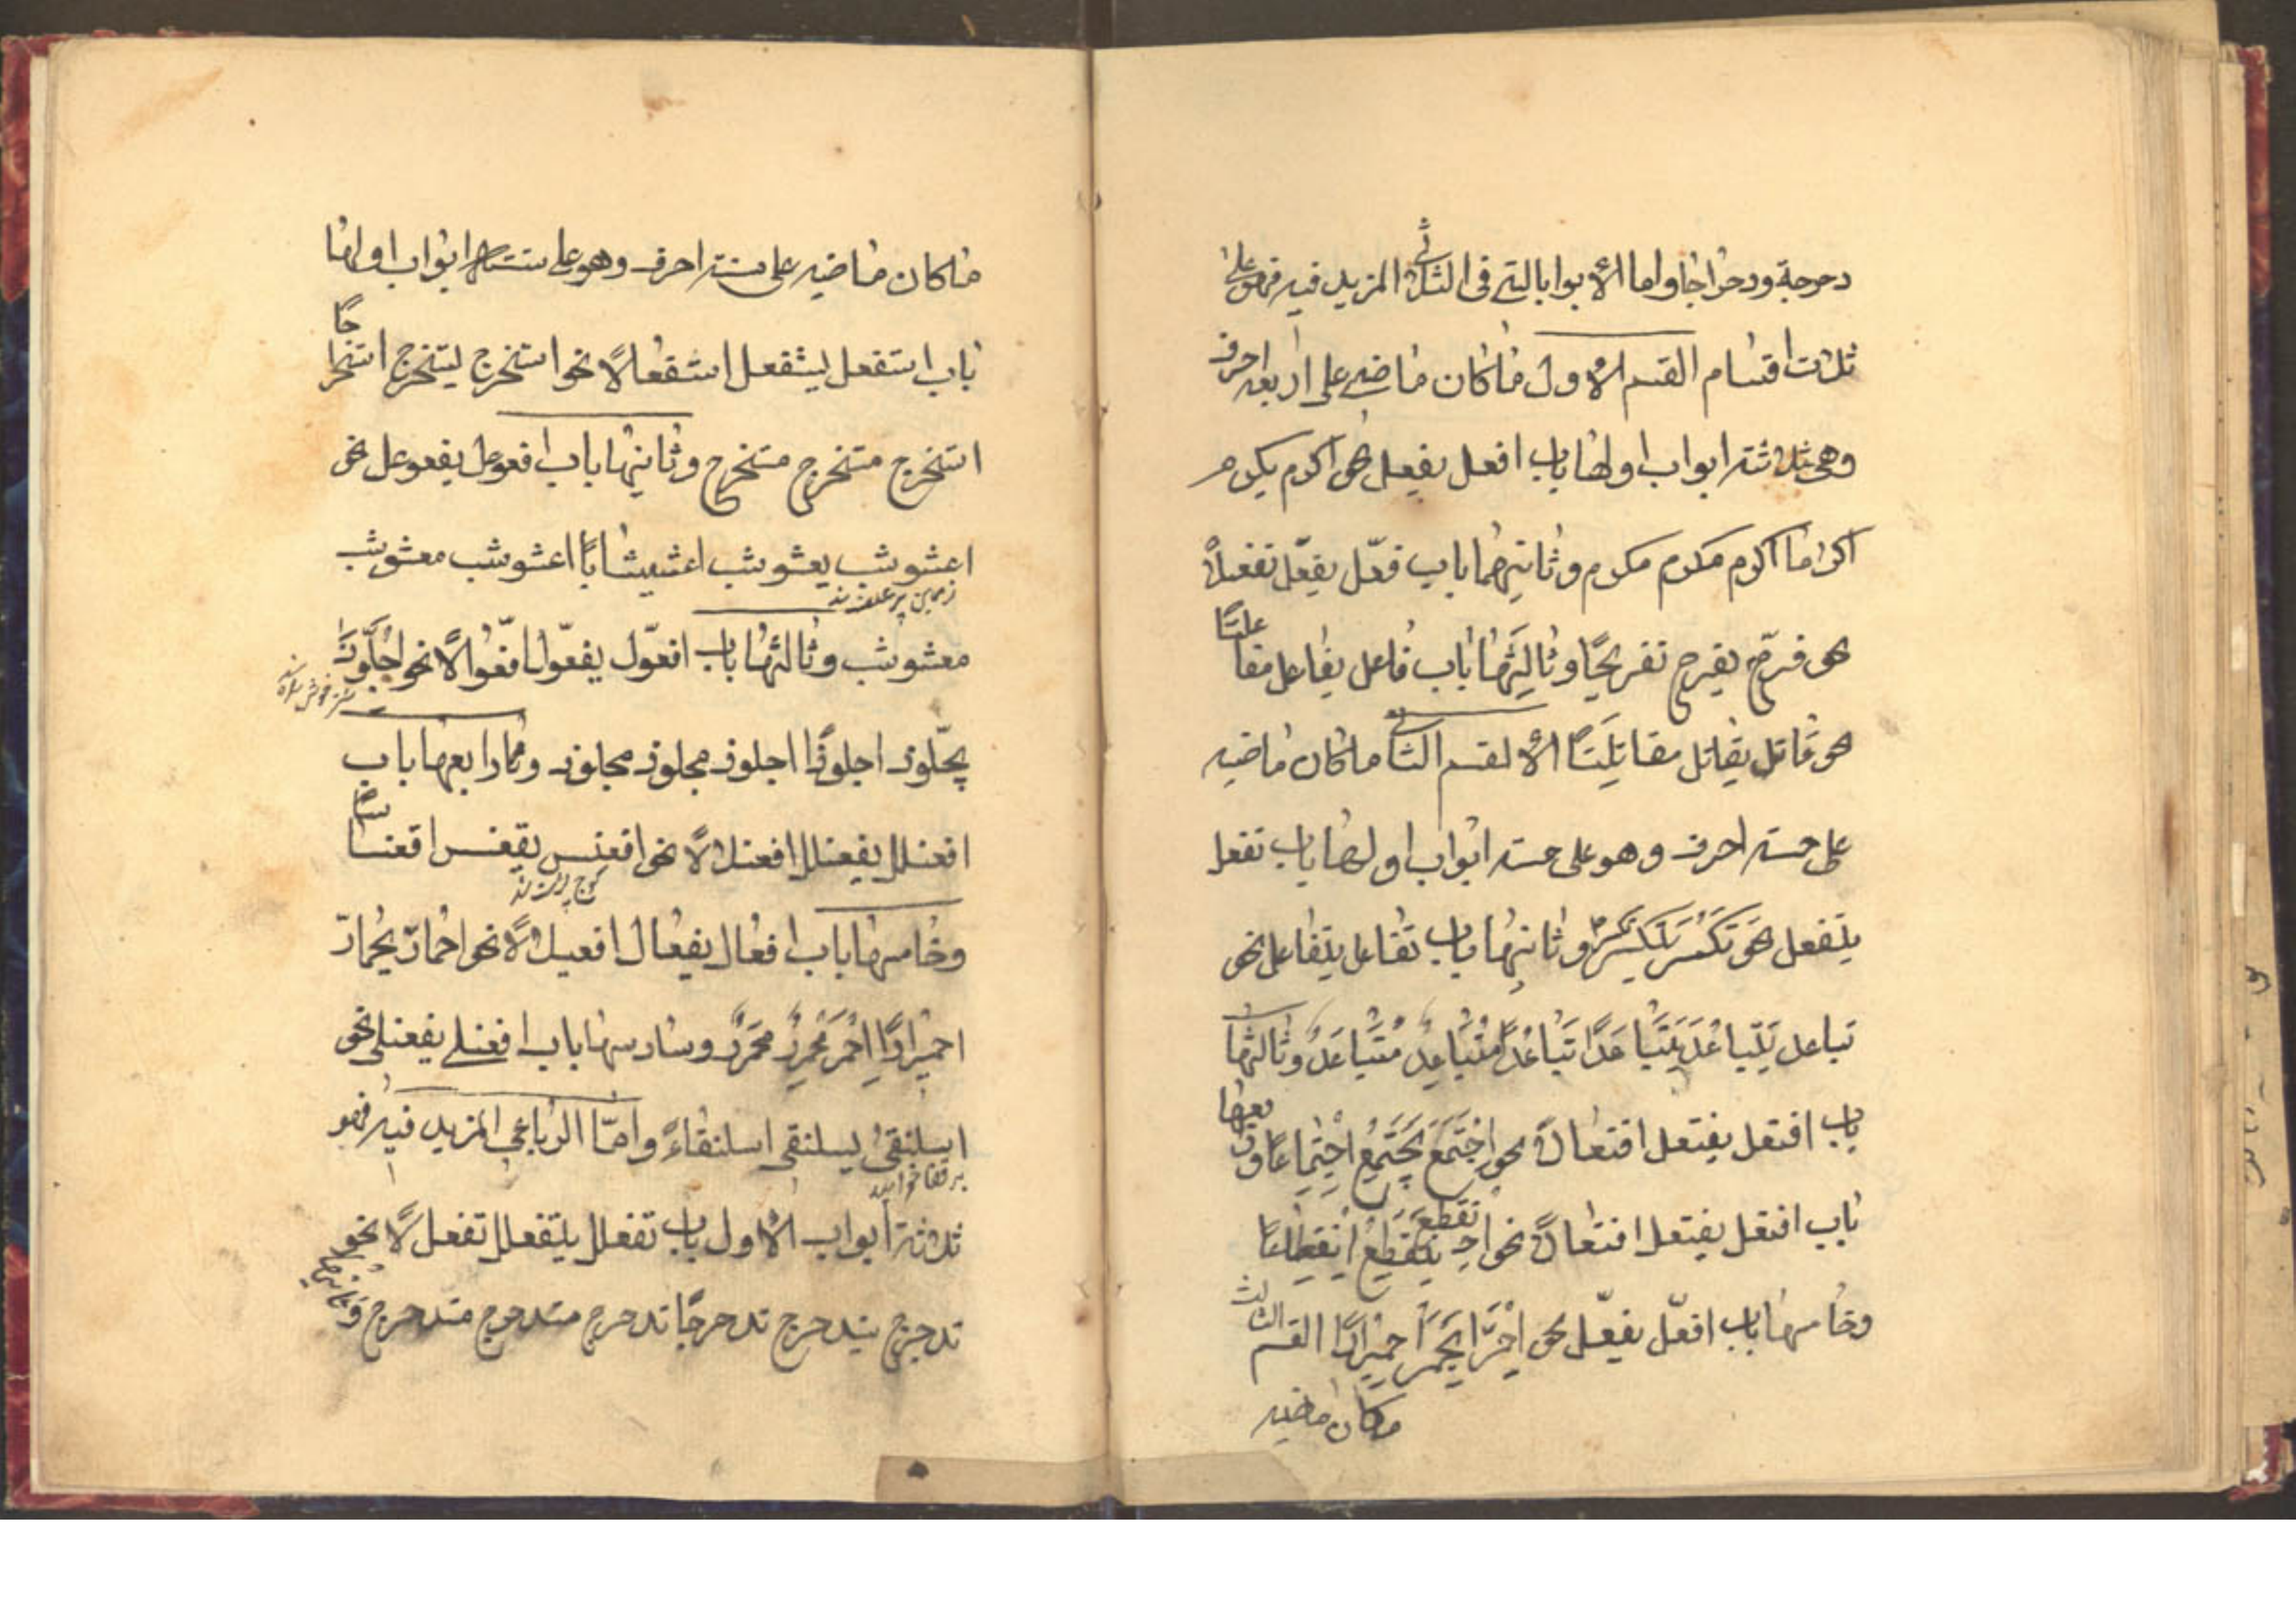 دحرجة ودحراجا واما الأبواب التی فی الثلاثی المزید فیه فهو علی
ثلاث اقسام القسم الأول ماکان ماضیه علی اربعه احرف
وهی ثلاثته ابواب اولها باب افعل یفعل نحو اکرم یکرم
اکراما اکرم مکرم مکرم وثانیهما باب فعّل یفعّل تفعیلاً
نحو فرّح یفرح تفریحًا وثالثها باب فاعل یفاعل مفاعلتًا
نحو قاتل یقاتل مقاتلتًا الالقسم الثانی ماکان ماضیه
علی خمسته احرف وهو علی خمسته ابواب اولها باب تفعل
یتفعل نحو تکسر یتکسر تکسر وثانیها باب تفاعل یتفاعل نحو
تباعل یتباعد یتباعدا تباعدا متباعد متباعد وثالثها
باب افتعل یفتعل افتعالاً نحو اجتمع یجتمع اجتماعا ورابعها
باب افتعل یفتعل افتعالاً نحو انقطع ینقطع انقطاعا
وخامسها باب افعلّ یفعلّ نحو احمرّ یحمر احمرارا القسم الثالث
ماکان ماضیه
ماکان ماضیه علی سته احرف وهو علی ستته ابواب اولها
باب استفعل لیستفعل استفعالاً نحو استخرج لیتخرج استخراجًا
استخرج متخرج متخرج وثانیها باب افعوعل یفعوعل نحو
اعشوشب یعشوشب اعشیشابًا اعشوشب معشوشب
زمین پر علف شد
معشوشب وثالثها باب افعوّل یفعوّل افعّوالاً نحو اجلوّذ
یجلّوذ اجلوذا اجلوذ مجلوذ مجلوذ ورابعها باب
افعنلل یفعنلل افعنلالاً نحو اقعنس یقعنس اقعنساسًا
وخامسها باب افعال یفعال افعیلالاً نحو احمارّ یحمارّ
احمیرارًا احمر محمرر محمرر وسادسها باب افعنلی یفعنلی نحو
اسلنقی لیسلنقی اسلنقاءً وامّا الرباعی المزید فیه فهو
بر قفا خوابید
ثلاثة ابواب الأول باب تفعلل یتفعلل تفعللاً نحو
تدحرج یتدحرج تدحرجًا تدحرج متدحرج متدحرج وثانیها